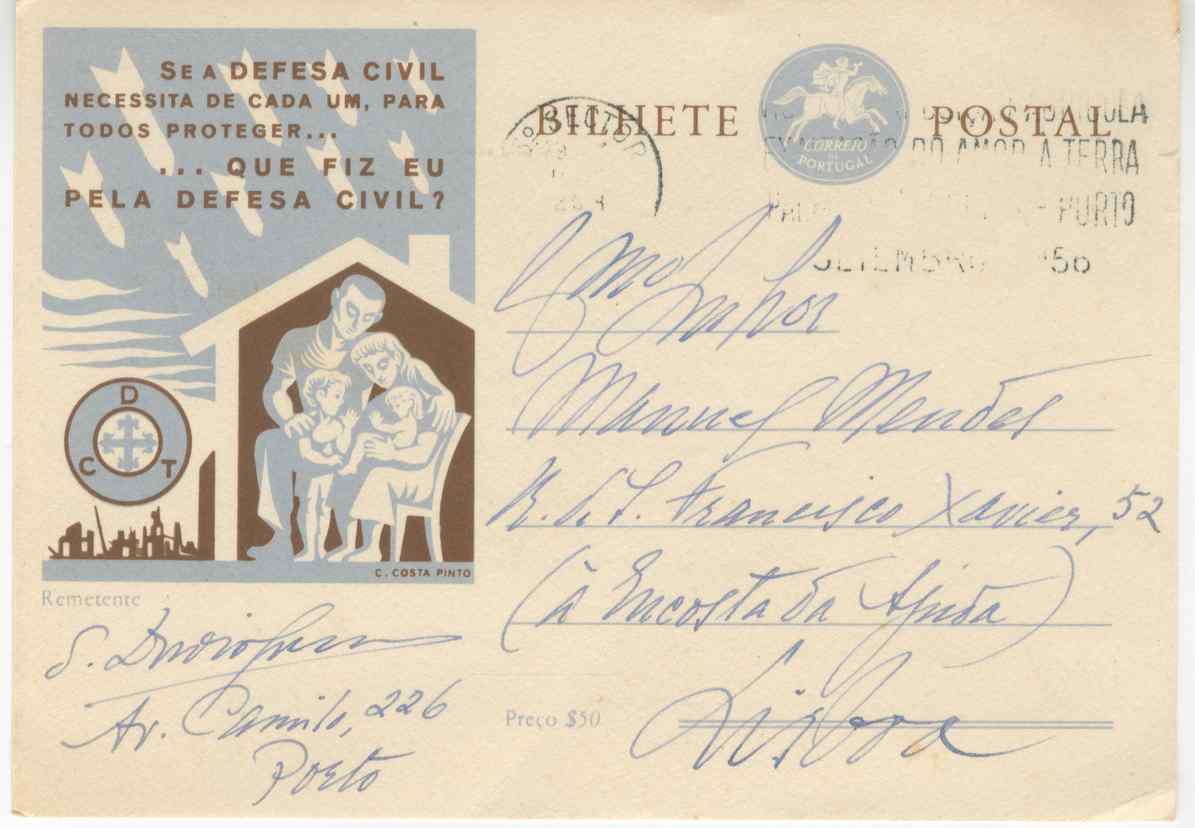 SE A DEFESA CIVIL
NECESSITA DE CADA UM, PARA
TODOS PROTEGER...
... QUE FIZ EU
PELA DEFESA CIVIL?
D
C T
C. COSTA PINTO
BILHETE POSTAL
CORREIO
DE
PORTUGAL
EXALTAÇÃO DO AMOR A TERRA
PORTO
SETEMBRO 1956
Exmo.
Senhor
Manuel Mendes
R. de S. Francisco Xavier, 52
(à Encosta da Ajuda)
Lisboa
Preço $50
Remetente
Av. Camilo, 226
Porto